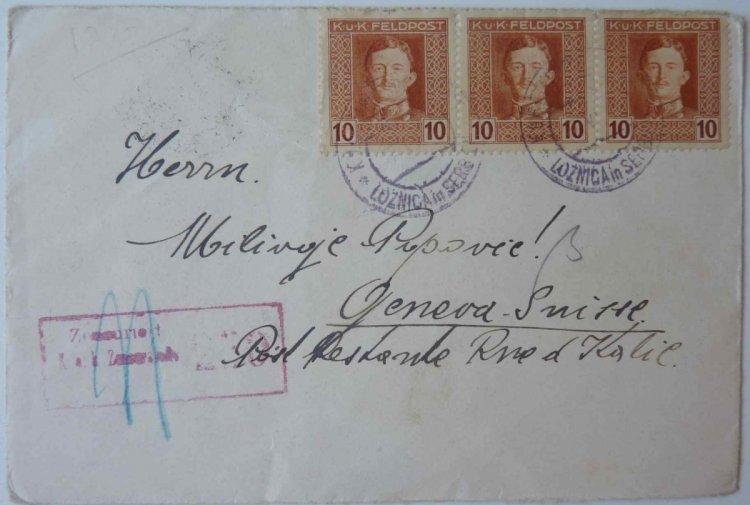 K.u.K. FELDPOST K.u.K. FELDPOST K.u.K. FELDPOST
10 10 10 10 10 10
LOZNICA in SERB
LOZNICA in SERB
Herrn.
Milivoje Popović!
Geneva-Suisse.
Post Restante Rue d Italie.
Zensuriert
K.u.K.